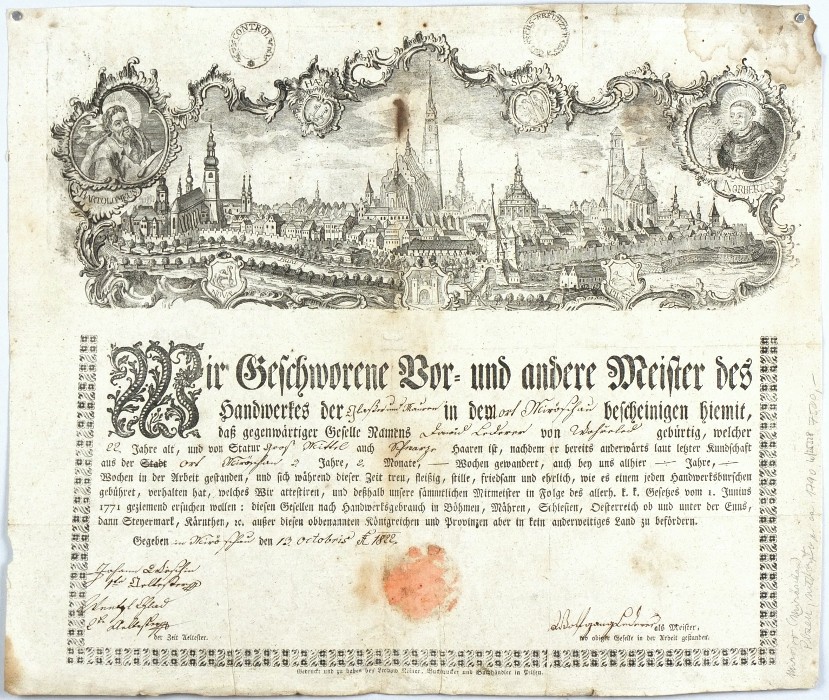 CONTROL
BARTOLOMEUS
NORBERT
Wir Geschworene Vor- und andere Meister des
Handwerkes der Maurer in dem ort Miröschau bescheinigen hiemit,
daß gegenwärtiger Geselle Namens David Lederer von gebürtig, welcher
22 Jahre alt, und von Statur gros Mittel auch Schwarze Haaren ist, nachdem er bereits anderwärts laut letzter Kundschaft
aus der Stadt ort Miröschau 2 Jahre, 2 Monate, — Wochen gewandert, auch bey uns allhier — Jahre, —
Wochen in der Arbeit gestanden, und sich während dieser Zeit treu, fleißig, stille, friedsam und ehrlich, wie es einem jeden Handwerksburschen
gebühret, verhalten hat, welches Wir attestiren, und deßhalb unsere sämmtlichen Mitmeister in Folge des allerh. k. k. Gesetzes vom 1. Junius
1771 geziemend ersuchen wollen: diesen Gesellen nach Handwerksgebrauch in Böhmen, Mähren, Schlesien, Oesterreich ob und unter der Enns,
dann Steyermark, Kärnthen, ꝛc. außer diesen obbenannten Königreichen und Provinzen aber in kein anderweitiges Land zu befördern.
Gegeben in Miröschau den 13 octobris A 1822
Johann
Aeltester
Wentzl
Aeltester
der Zeit Aeltester.
Wolfgang Lederer als Meister,
wo obiger Geselle in der Arbeit gestanden.
Gedruckt und zu haben bey Leopold Kölner, Buchdrucker und Buchhändler in Pilsen.